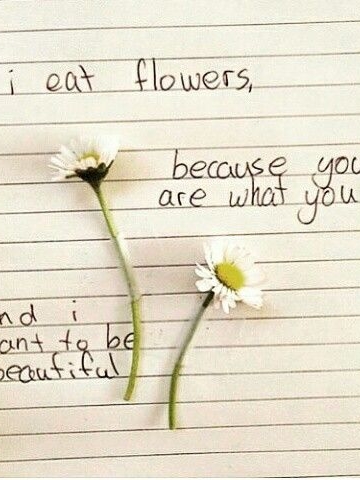 i eat flowers,
because you
are what you
nd i
ant to be
beautiful